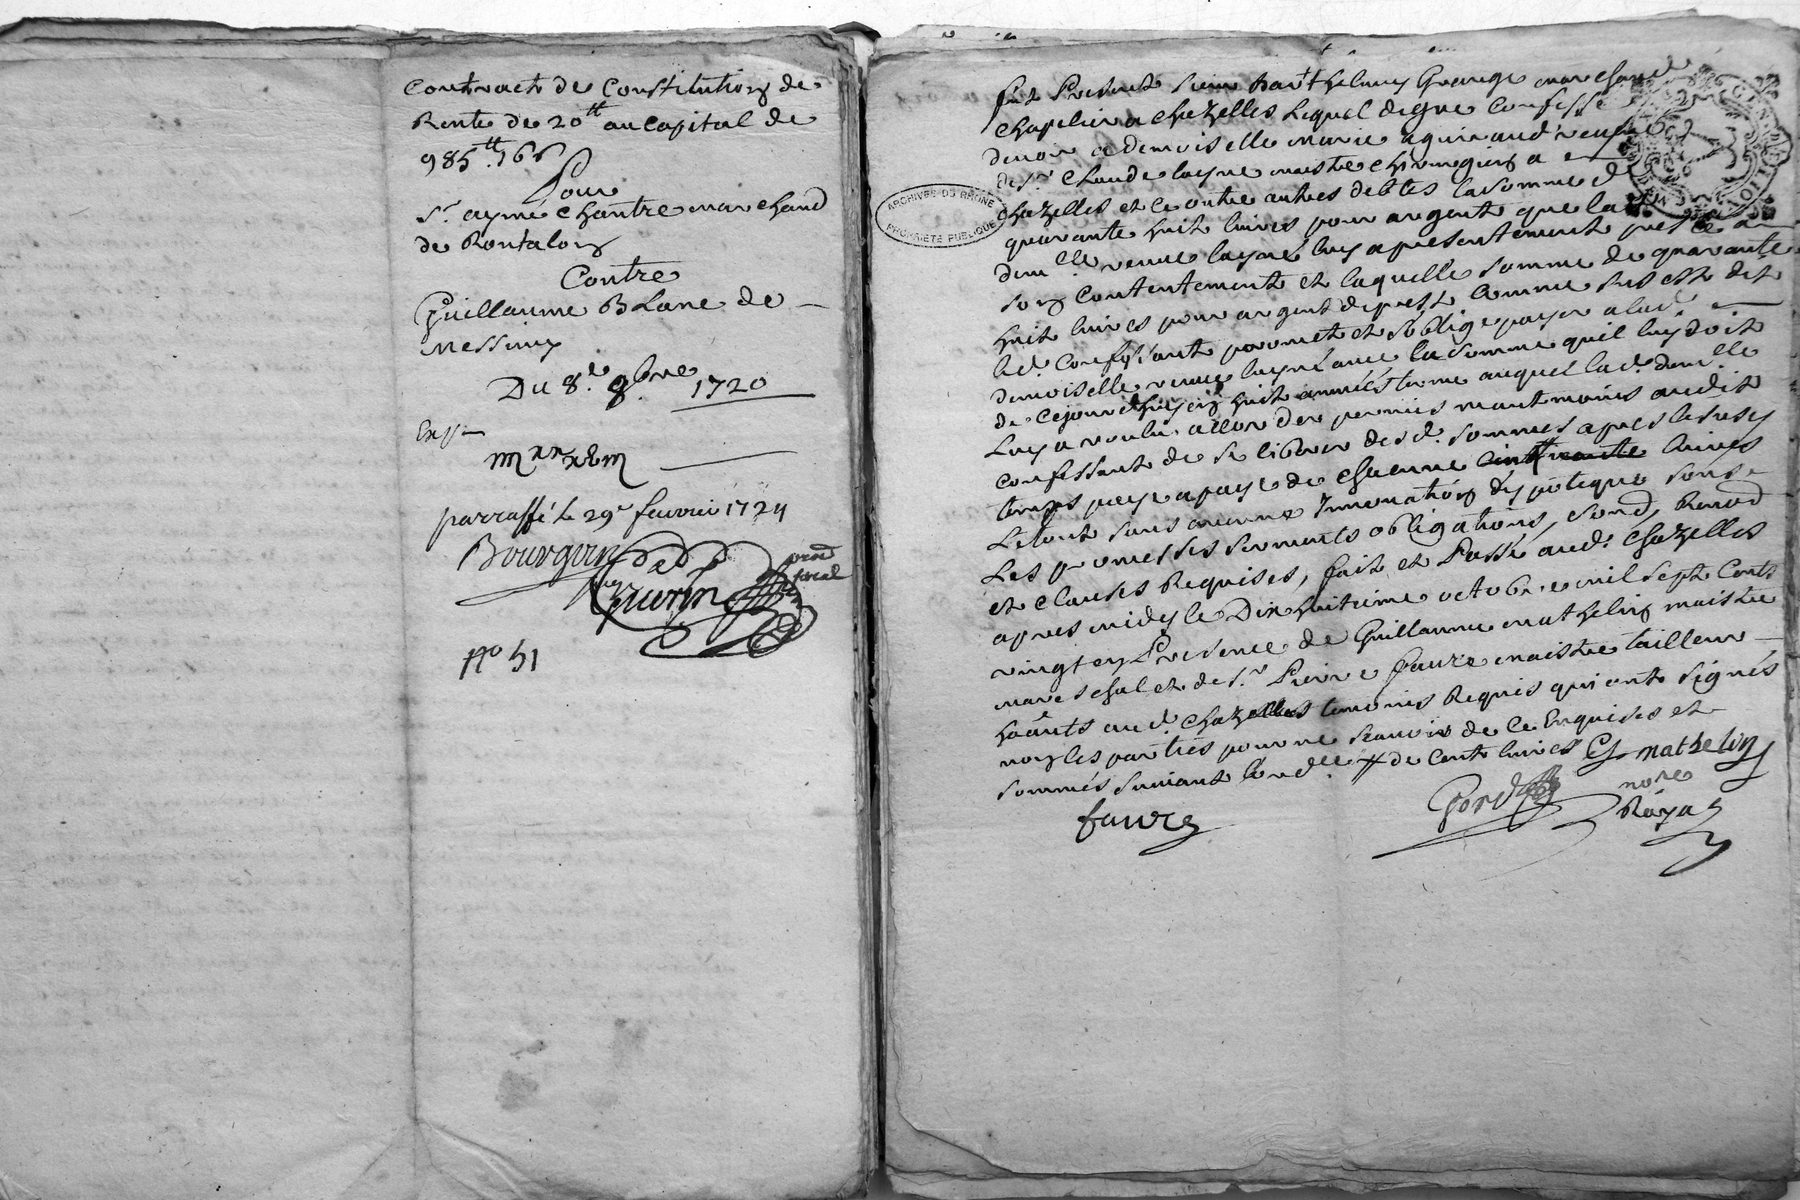 Contract de Constitution de
Rente de 20tt au Capital de
985tt 16s
Pour
Sr. ayme Chantre marchand
de Rontalon
Contre
Guillaume BLanc de
Messimy
Du 8e 9bre 1720
Exp
parraffé le 29e feuvrier 1724
Bourgin
Guerin
No 51
ARCHIVES DU RHÔNE
PROPRIÉTÉ PUBLIQUE
GEN DE LION
fut Present sieur Barthelemy Grange marchand
chapelier a chazelles Lequel de gre Confesse
devoir a demoiselle marie aguiraud veuve
de sr. Claude layne maistre chirurgien a
chazelles et ce outre autres debtes la somme de
quarante huit livres pour argent que la
demlle veuve layné luy a presentement preste a
son Contentement et laquelle somme de quarante
huit livres pour argent de prest Comme sus est dit
led. Confessant promet et s'oblige payer a lad.
demoiselle veuve layné avec la somme quil luy doit
de cejourdhuy en huit années terme auquel lad. demlle
Luy a voulu allonder permis neantmoins audit
Confessant de se liberer desd. sommes apres lesusy
temps paye a paye de chacune livres
Letout sans aucune Innovation dypoteque sous
Les promesses serments obligations, soud, Renod
et clauses Requises, fait et Passé aud. Chazelles
apres midy le Dix huitieme octobre mil sept Cents
vingt en Presence de Guillaume mathelin maistre
mareschal et de sr. Pierre faure maistre tailleur
hãants aud. chazelles temoins Requis qui ont signés
non les parties pour ne scavoir de ce Enquises et
sommés suivant l'ordce # de Cent livres G mathelon
faure
nore
Royal